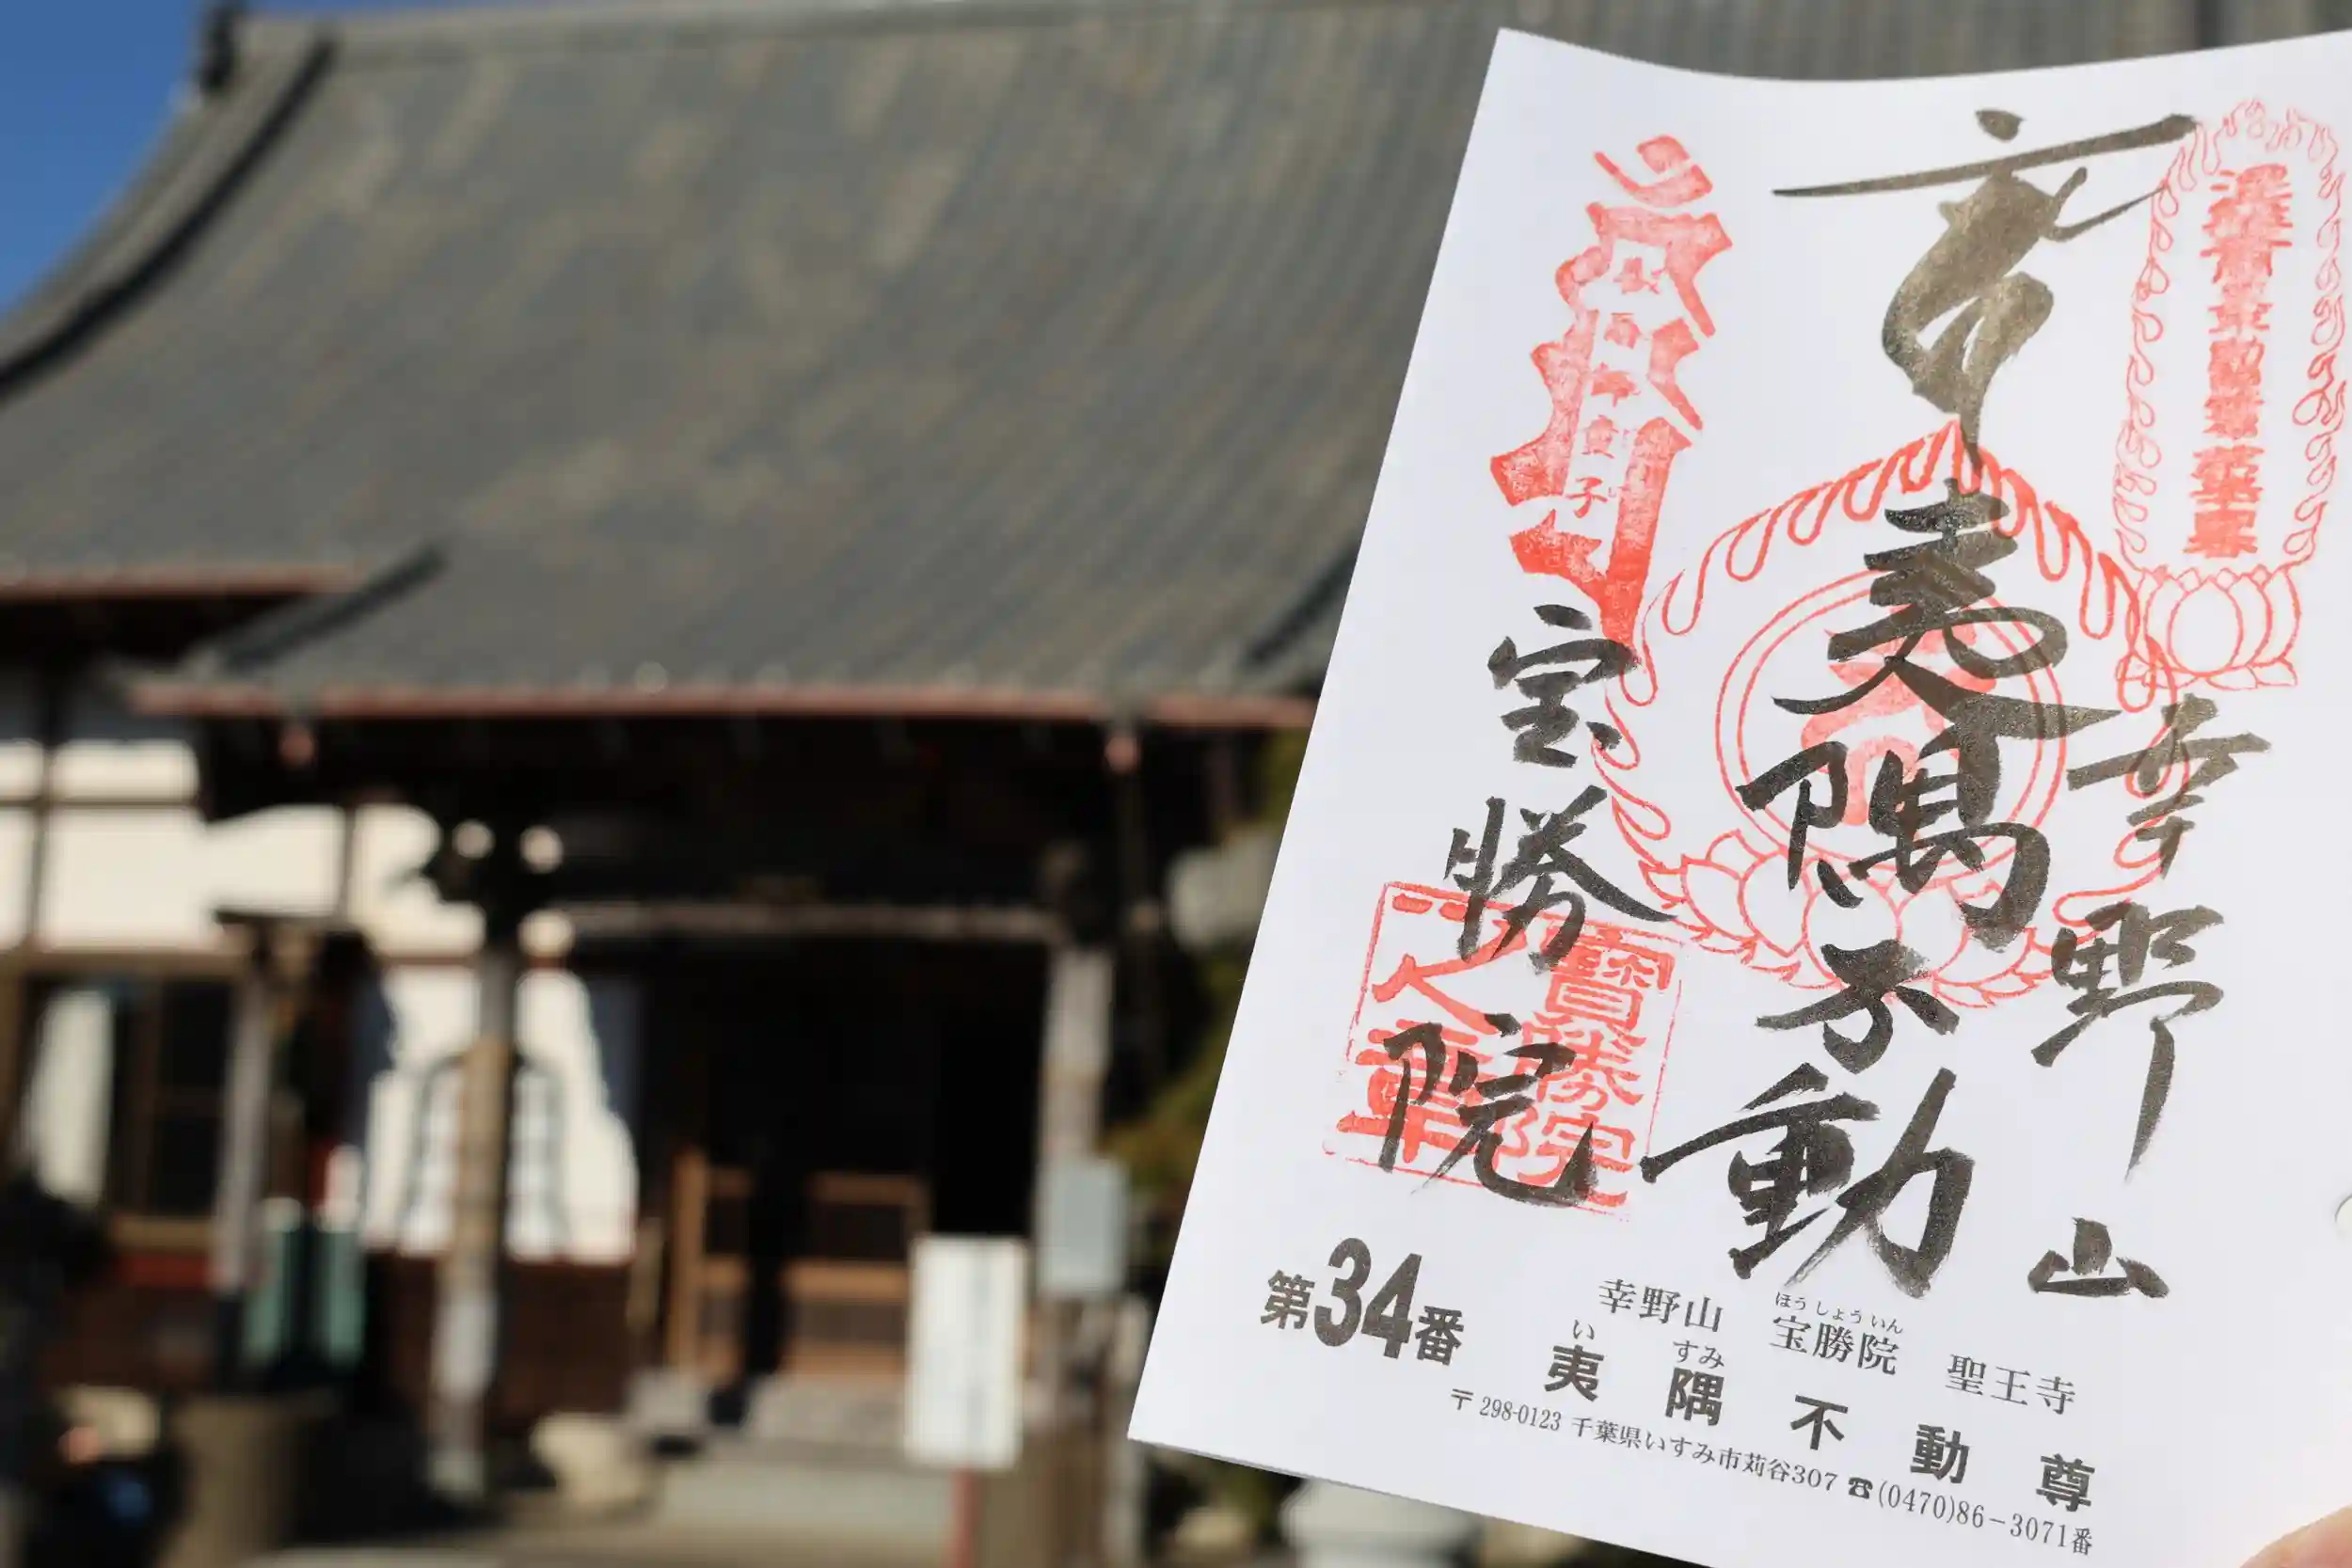 幸野山
夷隅不動
宝勝院
第34番
幸野山 宝勝院 聖王寺
ほうしょういん
夷隅不動尊
いすみ
〒298-0123 千葉県いすみ市苅谷307 ☎(0470)86-3071番